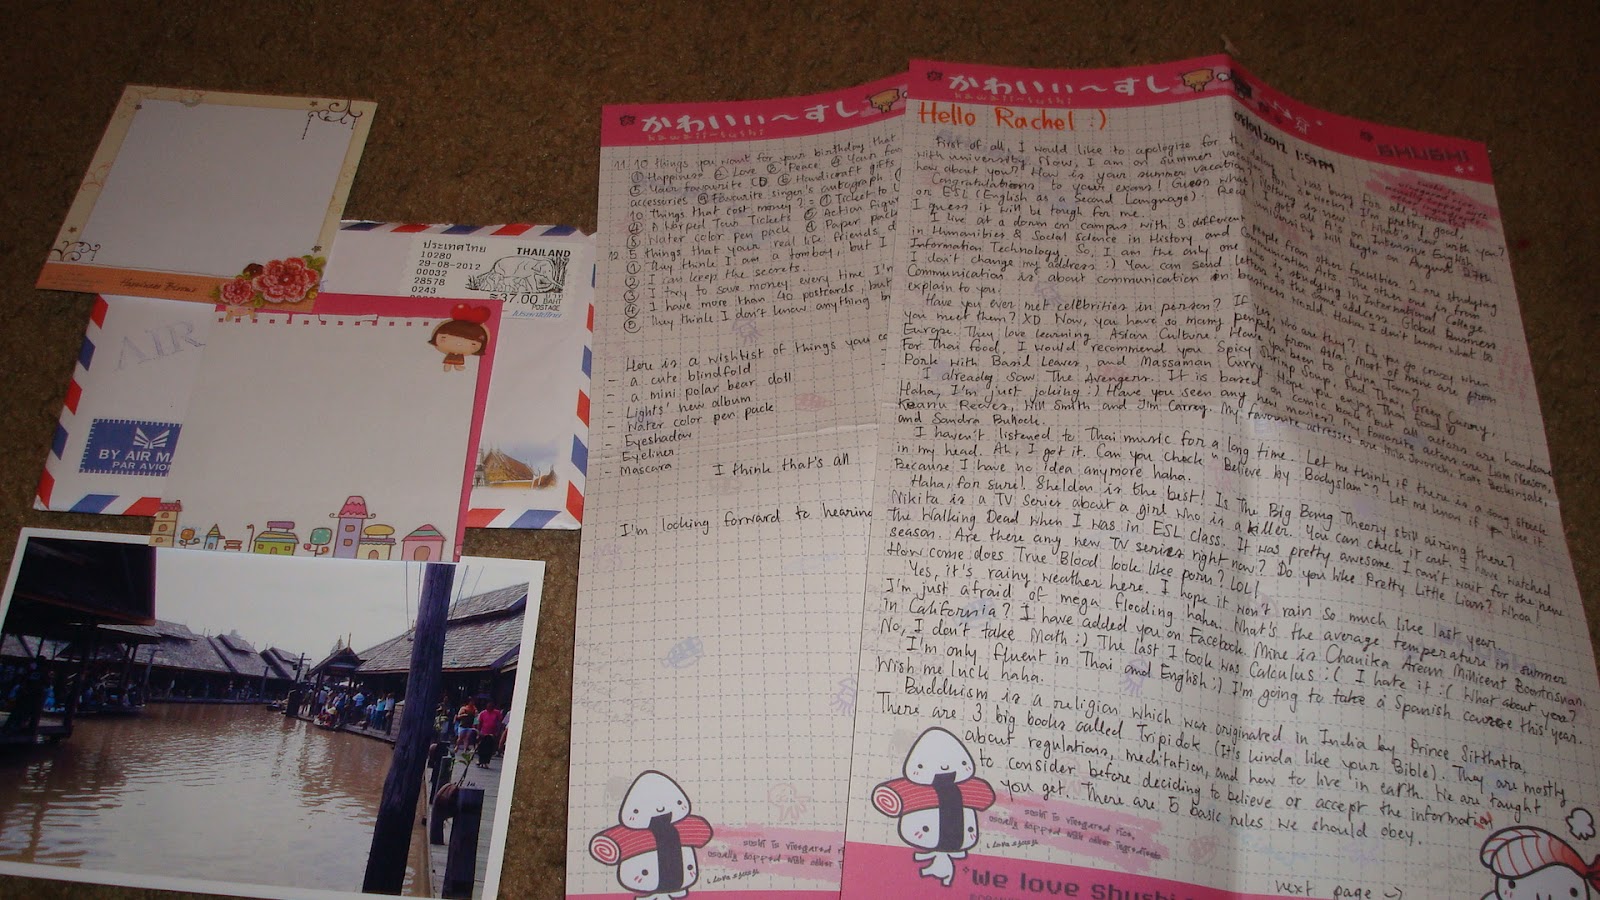 ประเทศไทย
10280
29-08-2012
00032
28578
0243
THAILAND
≈37.00
AIR
BY AIR MA
PAR AVION
かわいぃ～すし
kawaii-sushi
11. 10 things you want for your birthday that
① Happiness ② Love ③ Peace ④ Your fav
⑤ Your favourite CD ⑥ Handicraft gifts
accessories ⑨ Favourite singer's autograph
10 things that cost money? = ① Ticket to
② A horped Tour Tickets ⑤ Action figur
⑧ Water color pen pack ⑨ Paper pack
12. 5 things that your real life friends d
① They think I am a tomboy, but I
② I can keep the secrets.
③ I try to save money every time I'm
④ I have more than 40 postcards, but
⑤ They think I don't know anything b
Here is a wishlist of things you co
- a cute blindfold
- a mini polar bear doll
- Lights' new album
- Water color pen pack
- Eyeshadow
- Eyeliner
- Mascara
I think that's all
I'm looking forward to hearing
sushi is vinegared rice,
usually topped with other ingredients
i love sushi
かわいぃ～すし
kawaii-sushi
2012 1:59 PM
Hello Rachel :)
First of all, I would like to apologize for the delay. I was busy for about 3 weeks
with university. Now, I am on summer vacation. Nothing new
how about you? How is your summer vacation
Congratulations to your exams! Guess what! I got all A's on Intensive English
or ESL (English as a Second Language). Real university will begin on August 27th.
I guess it will be tough for me.
I live at a dorm on campus with 3 different people from other faculties. 2 are studying
in Humanities & Social science in History and Communication Arts. The other one is from
Information Technology. So, I am the only one who is studying in International College.
I don't change my address :) You can send letters to the same address. Global Business
Communication is about communication in business world. Haha, I don't know what to
explain to you.
Have you ever met celebrities in person? If yes, who are they? Do you go crazy when
you meet them? XD Now, you have so many penpals from Asia. Most of mine are from
Europe. They love learning Asian Culture. Have you been to China Town?
For Thai food, I would recommend you Spicy Shrimp Soup, Pad Thai, Green Curry,
Pork with Basil Leaves, and Massaman Curry. Hope you enjoy Thai food :)
I already saw The Avengers. It is based on comic book but all actors are handsome
Haha, I'm just joking :) Have you seen any new movies? My favorite actors are Liam Neeson,
Keanu Reeves, Will Smith and Jim Carrey. My favourite actresses are Mila Jovovich, Kate Beckinsale,
and Sandra Bullock.
I haven't listened to Thai music for a long time. Let me think if there is a song stuck
in my head. Ah, I got it. Can you check "Believe by Bodyslam"? Let me know if you like it.
Because I have no idea anymore haha.
Haha, for sure! Sheldon is the best! Is The Big Bang Theory still airing there?
Nikita is a TV series about a girl who is a killer. You can check it out. I have watched
The Walking Dead when I was in ESL class. It was pretty awesome. I can't wait for the new
season. Are there any new TV series right now? Do you like Pretty Little Liars? Whoa!
How come does True Blood look like porn? LOL!
Yes, it's rainy weather here. I hope it won't rain so much like last year.
I'm just afraid of mega flooding haha. What's the average temperature in summer
in California? I have added you on Facebook. Mine is Chanika Arean Millicent Boontrisuvan.
No, I don't take Math :) The last I took was Calculus :( I hate it :( What about you?
I'm only fluent in Thai and English :) I'm going to take a Spanish course this year.
Wish me luck haha.
Buddhism is a religion which was originated in India by Prince Sitthatta.
There are 3 big books called Tripidok (It's kinda like your Bible). They are mostly
about regulations, meditation, and how to live in earth. We are taught
to consider before deciding to believe or accept the information
you get. There are 5 basic rules we should obey.
sushi is vinegared rice,
usually topped with other ingredients
i love sushi
next page →
we love shushi